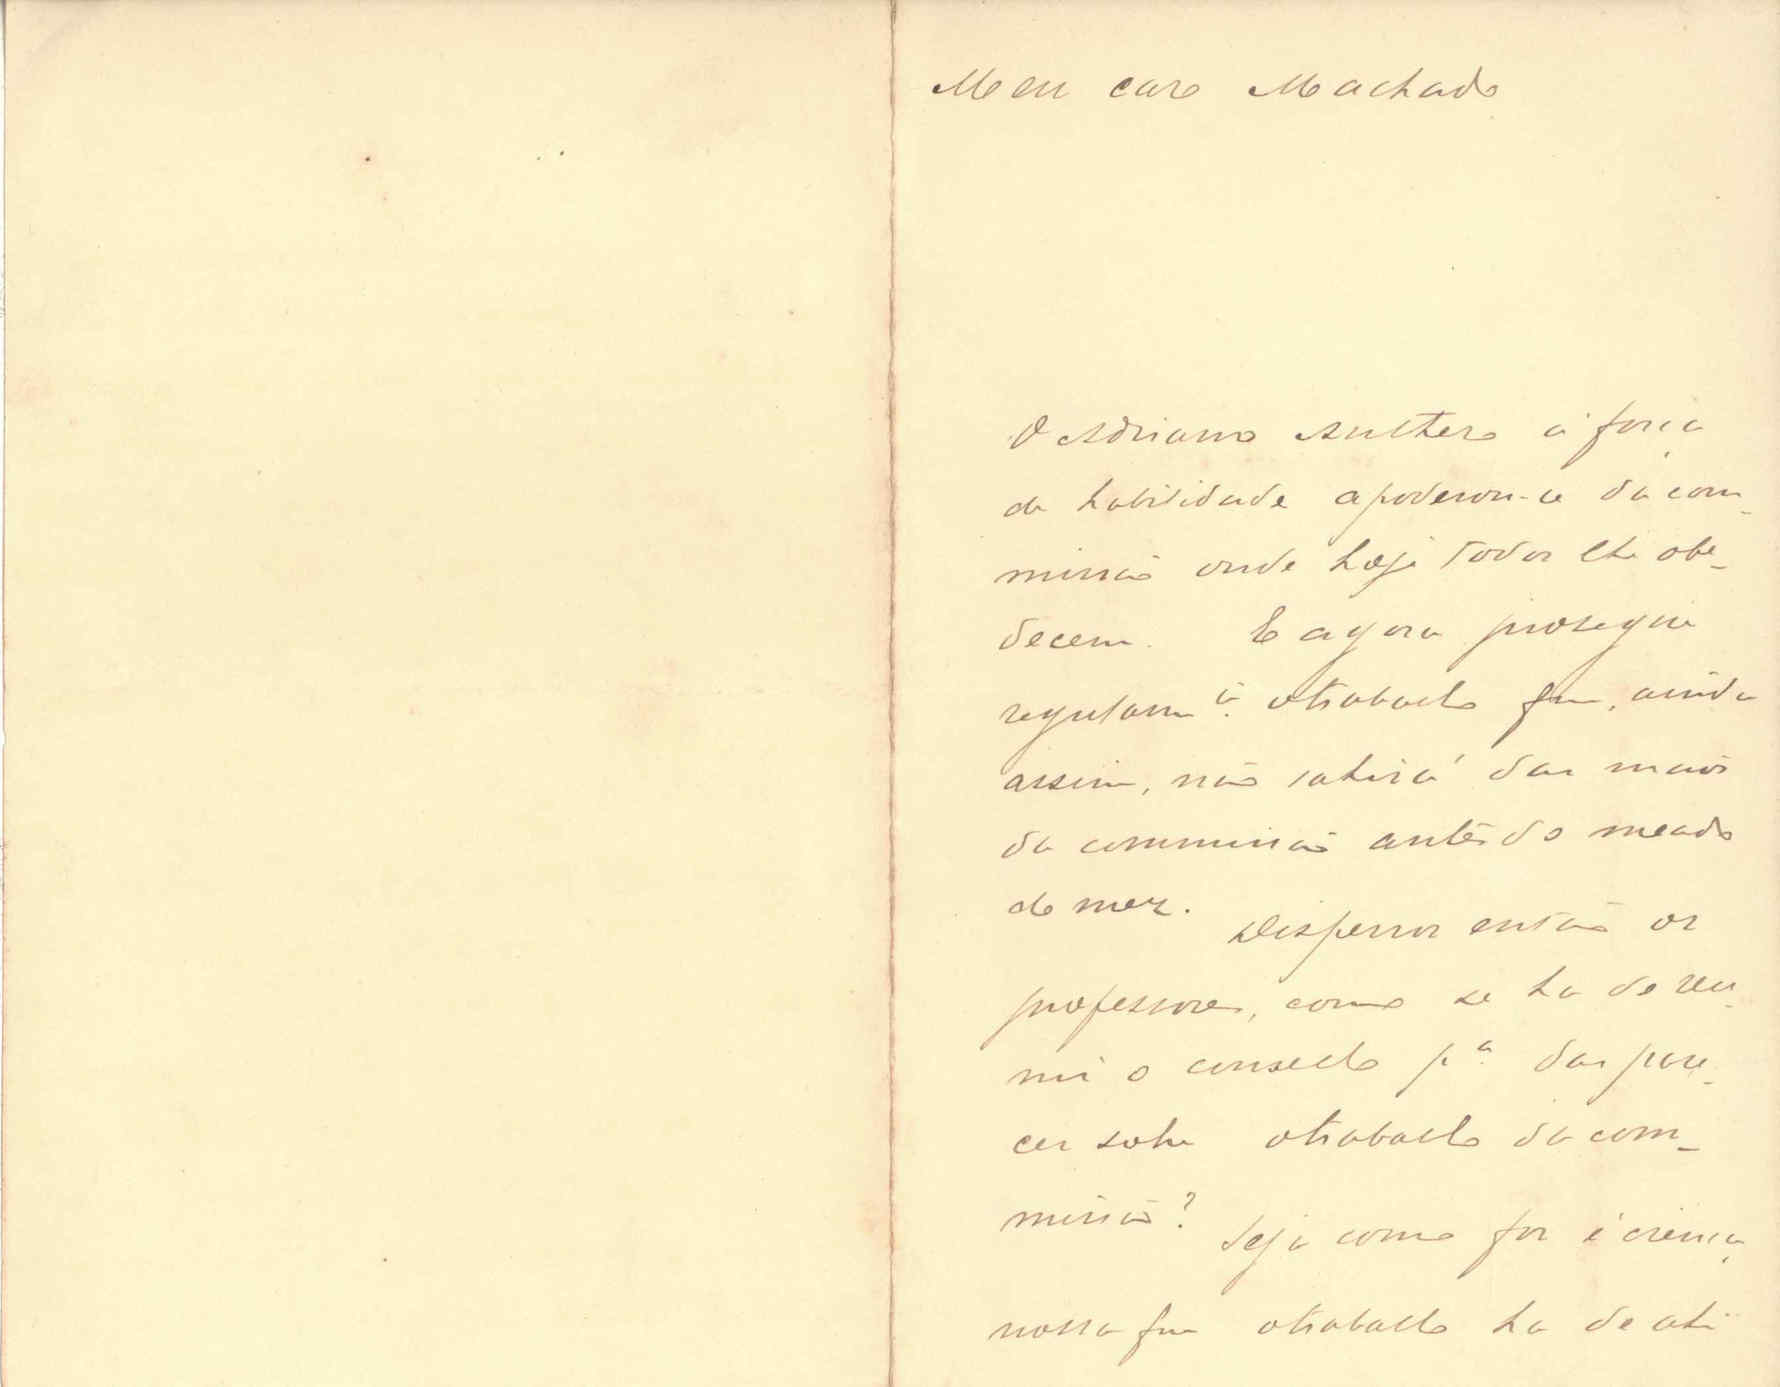 Meu caro Machado
O Adriano Anthero á força
de habilidade apoderou-se da com-
missão onde hoje todos lhe obe-
decem. E agora prosegue
regularm.e o trabalho que, ainda
assim, não sahirá das mãos
da commissão antes do meado
do mez. Dispersos então os
professores, como se ha de reu-
nir o conselho p.a dar pare-
cer sobre o trabalho da com-
missão? Seja como for é crença
nossa que o trabalho ha de ahi